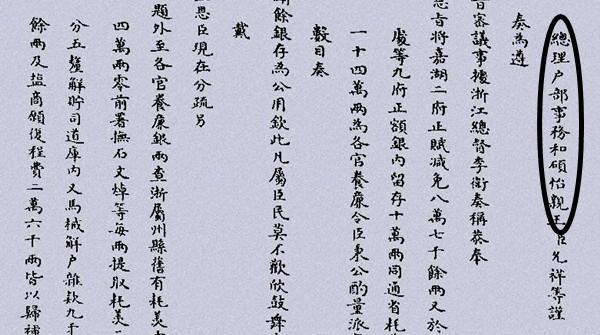 總理户部事務和碩怡親王臣允祥等謹
奏為遵
旨審議事據浙江總督李衛奏稱恭奉
恩旨將嘉湖二府正賦減免八萬七千餘兩又於
處等九府正額銀内留存十萬兩同通省耗
一十四萬兩為各官養廉令臣秉公酌量派
數目奏
戴
餘銀存為公用欽此凡屬臣民莫不歡欣鼓舞
恩臣現在分疏另
題外至各官養廉銀兩查浙屬州縣舊有耗美
四萬兩零前署撫石文焯等每兩提取耗美
分五釐解貯司道庫内又馬械解户雜款九千
餘兩及塩商願復程費二萬六千兩皆以歸補